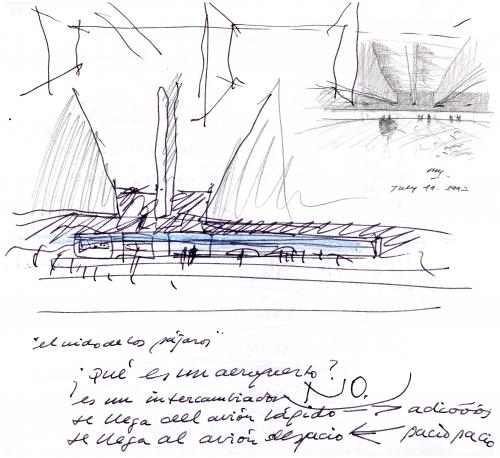 July 19. 1992
"el nido de los pájaros"
¿Qué es un aeropuerto?
es un intercambiador NO.
se llega del avión rápido = adióóós
se llega al avión despacio ← pacio pacio